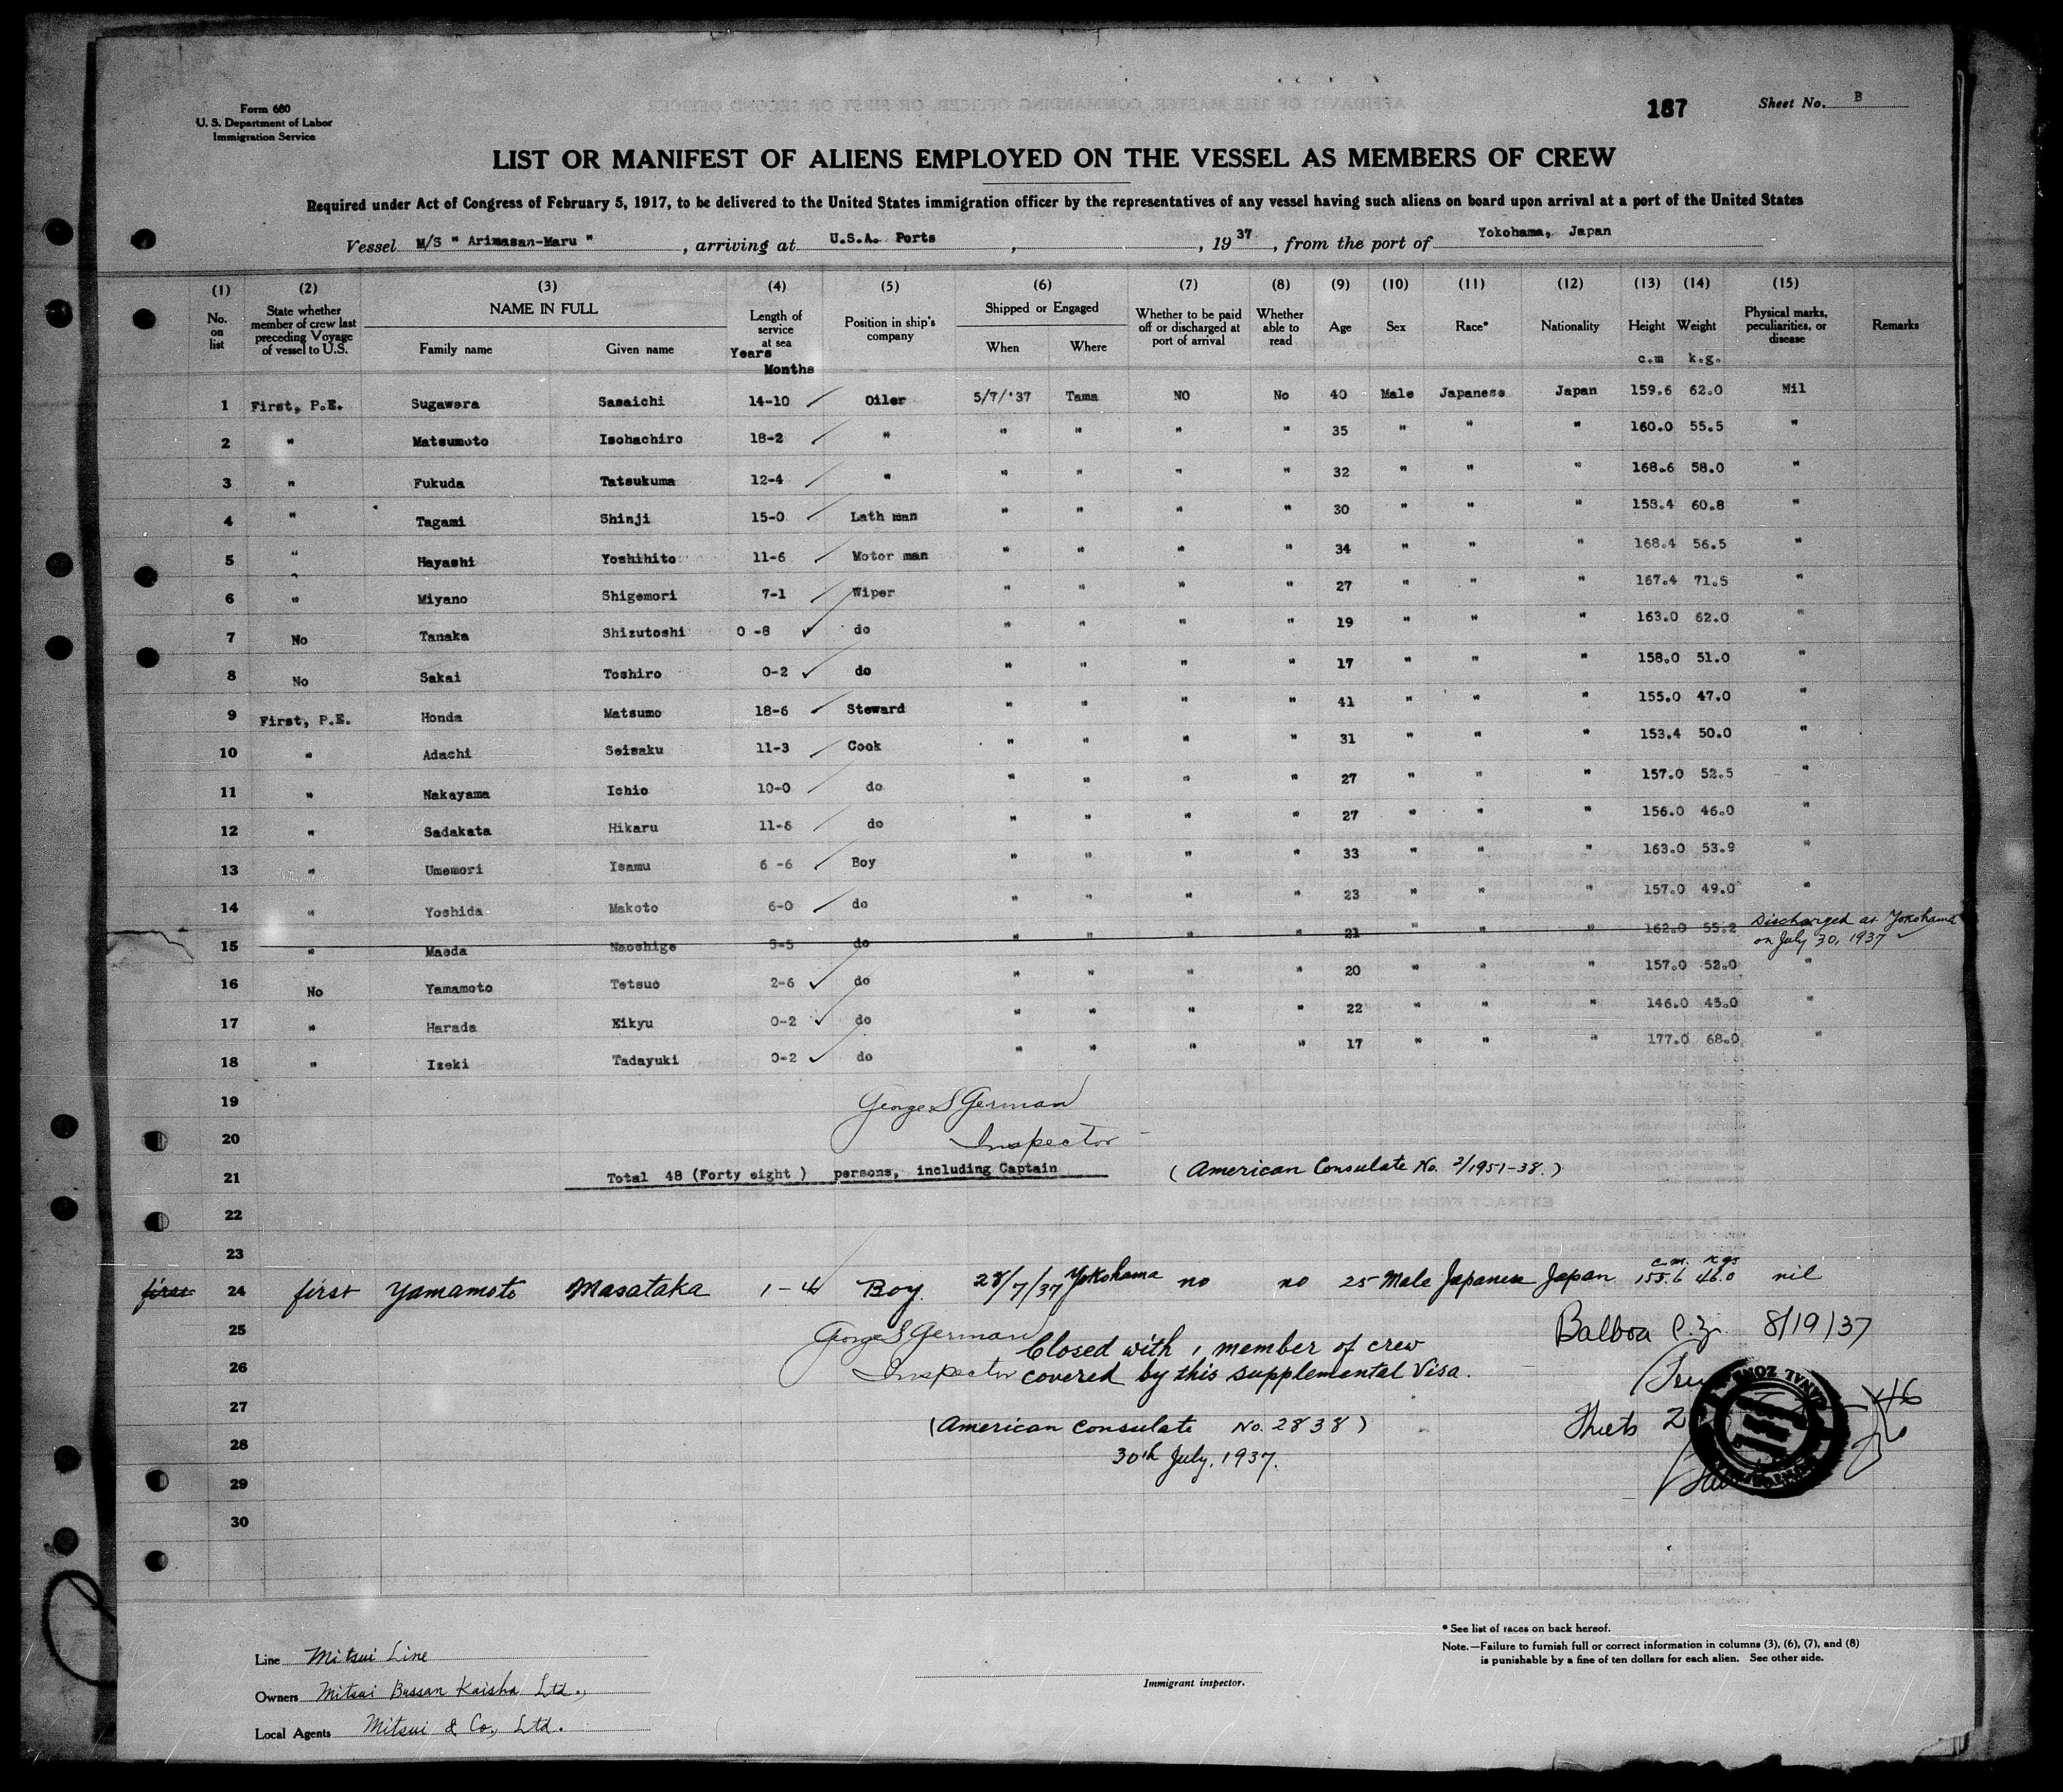 Form 680
U. S. Department of Labor
Immigration Service
187
Sheet No. B
LIST OR MANIFEST OF ALIENS EMPLOYED ON THE VESSEL AS MEMBERS OF CREW
Required under Act of Congress of February 5, 1917, to be delivered to the United States immigration officer by the representatives of any vessel having such aliens on board upon arrival at a port of the United States
Vessel M/S " Arimasan-Maru " , arriving at U.S.A. Ports , , 19 37 , from the port of Yokohama, Japan
(1) (2) (3) (4) (5) (6) (7) (8) (9) (10) (11) (12) (13) (14) (15)
No. on list
State whether member of crew last preceding Voyage of vessel to U.S.
NAME IN FULL
Family name Given name
Length of service at sea
Years
Months
Position in ship's company
Shipped or Engaged
When Where
Whether to be paid off or discharged at port of arrival
Whether able to read
Age Sex Race* Nationality Height Weight
c.m k.g.
Physical marks, peculiarities, or disease
Remarks
1 First, P.E. Sugawara Sasaichi 14-10 Oiler 5/7/'37 Tama NO No 40 Male Japanese Japan 159.6 62.0 Nil
2 " Matsumoto Isohachiro 18-2 " " " " " 35 " " " 160.0 55.5 "
3 " Fukuda Tatsukuma 12-4 " " " " " 32 " " " 168.6 58.0 "
4 " Tagami Shinji 15-0 Lath man " " " " 30 " " " 158.4 60.8 "
5 " Hayashi Yoshihito 11-6 Motor man " " " " 34 " " " 168.4 56.5 "
6 " Miyano Shigemori 7-1 Wiper " " " " 27 " " " 167.4 71.5 "
7 No Tanaka Shizutoshi 0 -8 do " " " " 19 " " " 163.0 62.0 "
8 No Sakai Toshiro 0-2 do " " " " 17 " " " 158.0 51.0 "
9 First, P.E. Honda Matsumo 18-6 Steward " " " " 41 " " " 155.0 47.0 "
10 " Adachi Seisaku 11-3 Cook " " " " 31 " " " 153.4 50.0 "
11 " Nakayama Ichio 10-0 do " " " " 27 " " " 157.0 52.5 "
12 " Sadakata Hikaru 11-6 do " " " " 27 " " " 156.0 46.0 "
13 " Umemori Isamu 6 -6 Boy " " " " 33 " " " 163.0 53.9 "
14 " Yoshida Makoto 6-0 do " " " " 23 " " " 157.0 49.0 "
15 " Maeda Naoshige 5-5 do " " " " 21 " " " 162.0 55.2 Discharged at Yokohama
on July 30, 1937
16 No Yamamoto Tetsuo 2-6 do " " " " 20 " " " 157.0 52.0 "
17 " Harada Eikyu 0-2 do " " " " 22 " " " 146.0 43.0
18 " Izeki Tadayuki 0-2 do " " " " 17 " " " 177.0 68.0 "
19 George S German
20 Inspector
21 Total 48 (Forty eight ) persons, including Captain (American Consulate No. 2/1951-38.)
22
23
c.m. kgs
first 24 first Yamamoto Masataka 1-4 Boy. 28/7/37 Yokohama no no 25 Male Japanese Japan 155.6 46.0 nil
25 George S German Closed with 1 member of crew Balboa C.Z. 8/19/37
26 Inspector covered by this supplemental Visa.
27 (American Consulate No. 2838)
28 30th July, 1937.
29
30
CANAL ZONE
* See list of races on back hereof.
Note.—Failure to furnish full or correct information in columns (3), (6), (7), and (8)
is punishable by a fine of ten dollars for each alien. See other side.
Line Mitsui Line
Owners Mitsui Bussan Kaisha Ltd.,
Local Agents Mitsui & Co., Ltd.
Immigrant inspector.